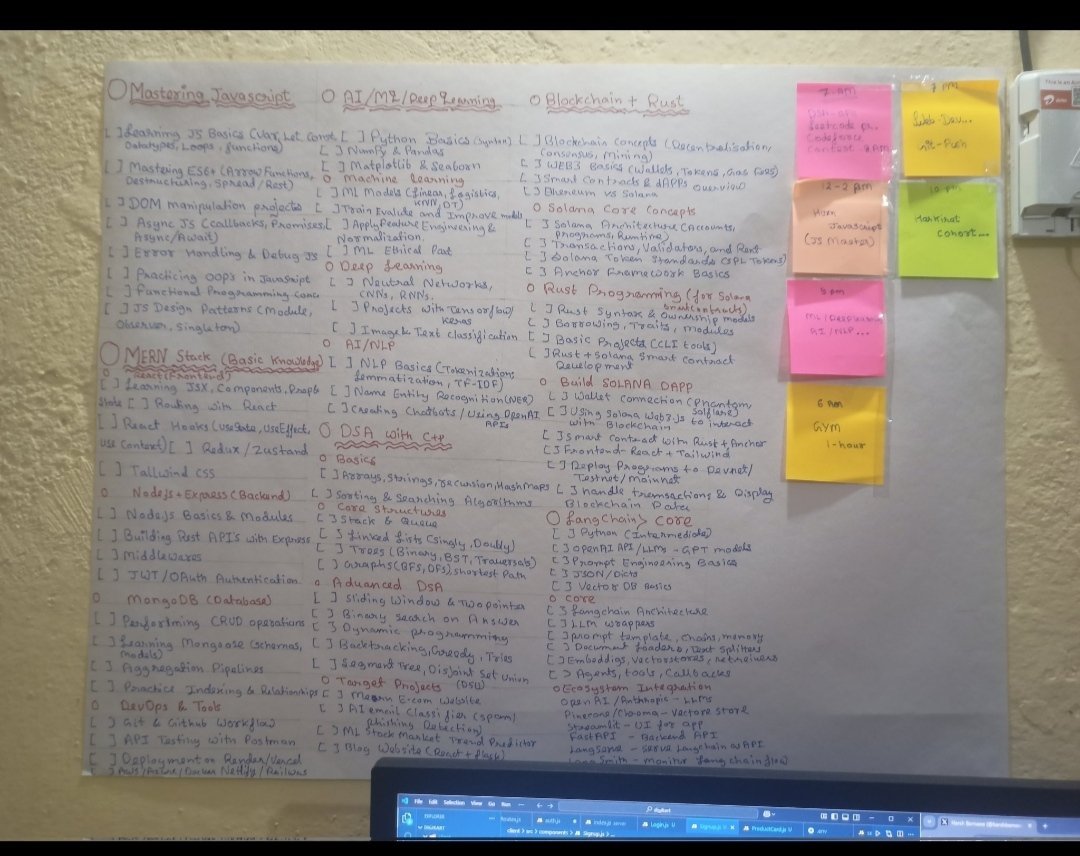 Mastering Javascript
[ ] Learning JS Basics (Var, Let Const
Datatypes, Loops, functions)
[ ] Mastering ES6+ (Arrow Functions,
Destructuring, Spread / Rest)
[ ] DOM manipulation projects
[ ] Async JS (Callbacks, Promises,
Async/Await)
[ ] Error Handling & Debug JS
[ ] Practicing OOPs in JavaScript
[ ] Functional Programming Conc
[ ] JS Design Patterns (Module,
Observer, Singleton)
MERN Stack (Basic Knowledge)
React (Frontend)
[ ] Learning JSX, Components, Props
State [ ] Routing with React
[ ] React Hooks (UseState, UseEffect,
Use Context) [ ] Redux / Zustand
[ ] Tailwind CSS
NodeJs + Express (Backend)
[ ] Node.js Basics & Modules
[ ] Building Rest API's with Express
[ ] Middlewares
[ ] JWT / OAuth Authentication
MongoDB (Database)
[ ] Performing CRUD operations
[ ] Learning Mongoose (schemas,
models)
[ ] Aggregation Pipelines
[ ] Practice Indexing & Relationships
DevOps & Tools
[ ] Git & Github Workflow
[ ] API Testing with Postman
[ ] Deployment on Render/Vercel
[ ] AWS / Azure / Docker Netlify / Railway
AI/ML/Deep Learning
[ ] Python Basics (Syntax)
[ ] NumPy & Pandas
[ ] Matplotlib & Seaborn
Machine Learning
[ ] ML Models (Linear, Logistics,
KNN, DT)
[ ] Train Evaluate and Improve models
[ ] Apply Feature Engineering &
Normalization.
[ ] ML Ethical Part
Deep Learning
[ ] Neutral Networks,
CNNs, RNNs.
[ ] Projects with Tensorflow/
Keras
[ ] Image & Text Classification
AI/NLP
[ ] NLP Basics (Tokenization,
Lemmatization, TF-IDF)
[ ] Name Entity Recognition (NER)
[ ] Creating Chatbots / Using OpenAI
APIs
DSA with C++
Basics
[ ] Arrays, Strings, recursion, HashMaps
[ ] Sorting & Searching Algorithms
Core Structures
[ ] Stack & Queue
[ ] Linked Lists (Singly, Doubly)
[ ] Trees (Binary, BST, Traversals)
[ ] Graphs (BFS, DFS), Shortest Path
Advanced DSA
[ ] Sliding Window & Two pointer
[ ] Binary Search on Answer
[ ] Dynamic programming
[ ] Backtracking, Greedy, Tries
[ ] Segment Tree, Disjoint Set Union
(DSU)
Target Projects
[ ] Mearn E-com Website
[ ] AI email Classifier (spam/
phishing Detection)
[ ] ML Stock Market Trend Predictor
[ ] Blog Website (React + flask)
Blockchain + Rust
[ ] Blockchain Concepts (Decentralisation,
Consensus, Mining)
[ ] WEB3 Basics (Wallets, Tokens, Gas Fees)
[ ] Smart Contracts & dAPPs overview
[ ] Ethereum vs Solana
Solana Core Concepts
[ ] Solana Architecture (Accounts,
Programs, Runtime)
[ ] Transactions, Validators, and Rent
[ ] Solana Token Standards (SPL Tokens)
[ ] Anchor Framework Basics
Rust Programming (for Solana
Smart Contracts)
[ ] Rust Syntax & Ownership models
[ ] Borrowing, Traits, modules
[ ] Basic Projects (CLI tools)
[ ] Rust + Solana Smart Contract
Development
Build SOLANA DAPP
[ ] Wallet Connection (Phantom,
Solflare)
[ ] Using Solana Web3.js to interact
with Blockchain
[ ] Smart Contract with Rust + Anchor
[ ] Frontend - React + Tailwind
[ ] Deploy Programs to Devnet/
Testnet / mainnet
[ ] handle transactions & Display
Blockchain Data
LangChain Core
[ ] Python (Intermediate)
[ ] OpenAI API / LLMs - GPT models
[ ] Prompt Engineering Basics
[ ] JSON/Dicts
[ ] Vector DB Basics
Core
[ ] Langchain Architecture
[ ] LLM wrappers
[ ] Prompt template, chains, memory
[ ] Document loaders, Text Splitters
[ ] Embeddigs, Vectorstores, retrievers
[ ] Agents, tools, Callbacks
Ecosystem Integration
Open AI / Anthropic - LLMs
Pinecone / Chroma - Vectore Store
Streamlit - UI for app
FastAPI - Backend API
LangServe - Serve Langchain as API
LangSmith - monitor Lang chain flow
7-AM
Leetcode
Codeforce
Contest
7 PM
Web-Dev...
Git-Push
12-2 pm
Javascript
(JS Master)
10 pm
Harkirat
Cohort...
5 pm
AI/NLP...
6 am
GYM
1-hour
airtel
File Edit Selection View Go Run ...
digikart
EXPLORER
DIGIKART
auth.js
index.js server
Login.js U
Signup.js U
ProductCard.js U
.env
client > src > components > Signup.js > ...